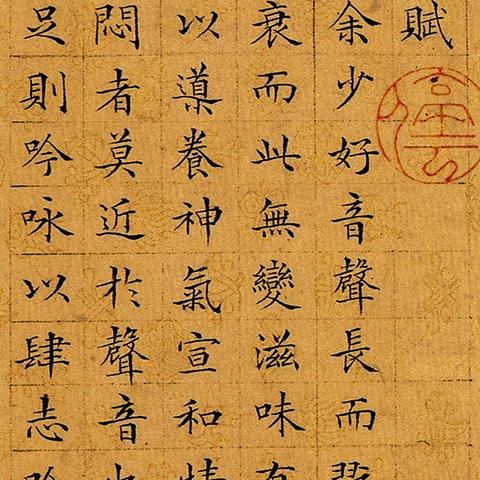 賦
余少好音聲長而翫
衰而此無變滋味有
以䆃養神氣宣和情
悶者莫近於聲音也
足則吟咏以肆志吟